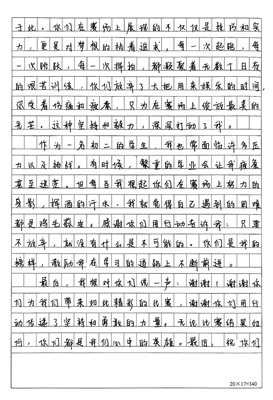 于此。你们在赛场上展现的不仅仅是技巧和实
力，更是对梦想的执着追求。每一次起跑，每
一次跳跃，每一次挥拍，都凝聚着无数个日夜
的艰苦训练，你们放弃了太把用来娱乐的时间，
忍受着伤痛和疲惫，只为在赛场上绽放最美的
光芒。这种坚持和毅力，深深打动了我。
作为一名初二的学生，我也常面临许多压
力以及挑战。有时候，繁重的学业会让我疲惫
甚至迷茫。但每当我想起你们在赛场上努力的
身影，挥洒的汗水，我就觉得自己遇到的困难
都是鸡毛蒜皮。感谢你们用行动告诉我：只要
不放弃，就没有什么是不可能的。你们是我的
榜样，激励我在学习的道路上不断前进。
最后，我想对你们说一声：谢谢！谢谢你
们为我们带来如此精彩的比赛，谢谢你们用行
动传递了坚持和勇敢的力量。无论比赛结果如
何，你们都是我们心中的英雄。最后，祝你们
20×17=340